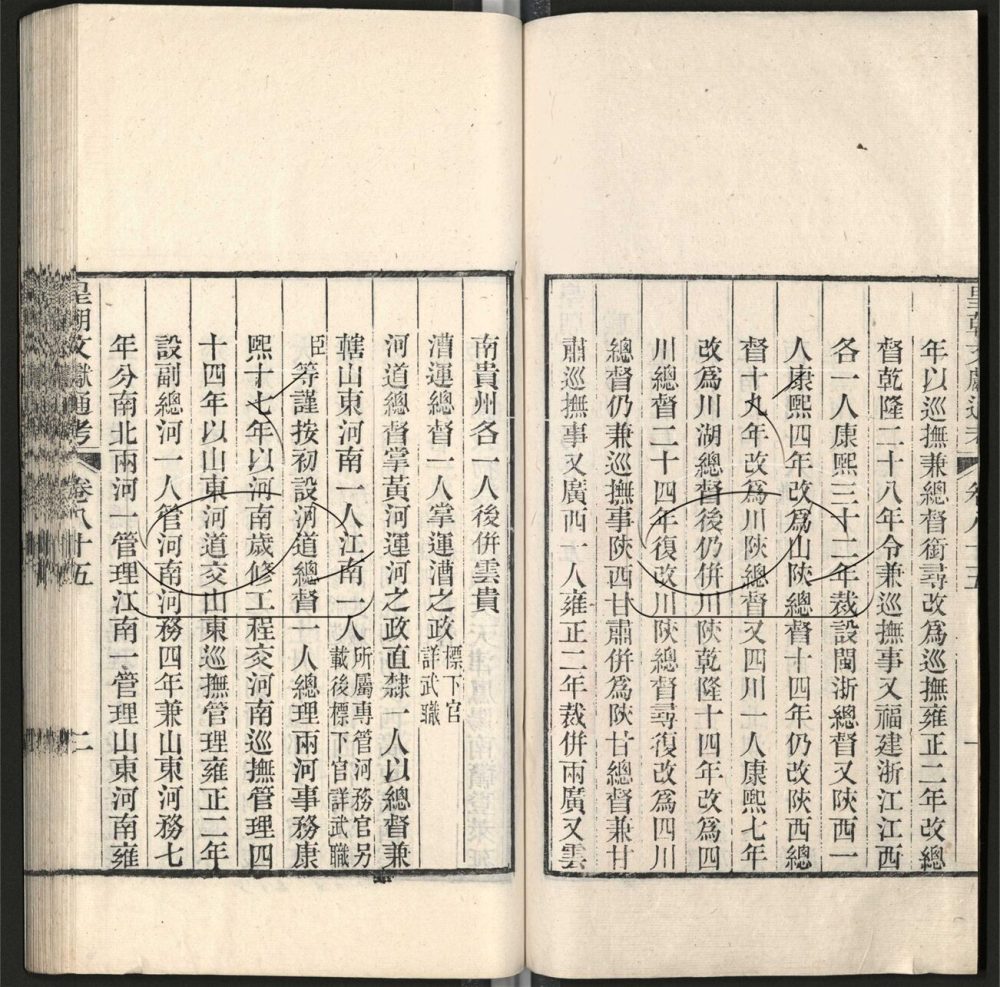 皇朝文獻通考 卷八十五 一
年以巡撫兼總督銜尋改為巡撫雍正二年改總
督乾隆二十八年令兼巡撫事又福建浙江江西
各一人康熙三十二年裁設閩浙總督又陝西一
人康熙四年改為山陝總督十四年仍改陝西總
督十九年改為川陝總督又四川一人康熙七年
改為川湖總督後仍併川陝乾隆十四年改為四
川總督二十四年復改川陝總督尋復改為四川
總督仍兼巡撫事陝西甘肅併為陝甘總督兼甘
肅巡撫事又廣西一人雍正二年裁併兩廣又雲
南貴州各一人後併雲貴
漕運總督一人掌運漕之政標下官詳武職
河道總督掌黃河運河之政直隸一人以總督兼
轄山東河南一人江南一人所屬專管河務官另載後標下官詳武職
臣等謹按初設河道總督一人總理兩河事務康
熙十七年以河南歲修工程交河南巡撫管理四
十四年以山東河道交山東巡撫管理雍正二年
設副總河一人管河南河務四年兼山東河務七
年分南北兩河一管理江南一管理山東河南雍
皇朝文獻通考 卷八十五 二